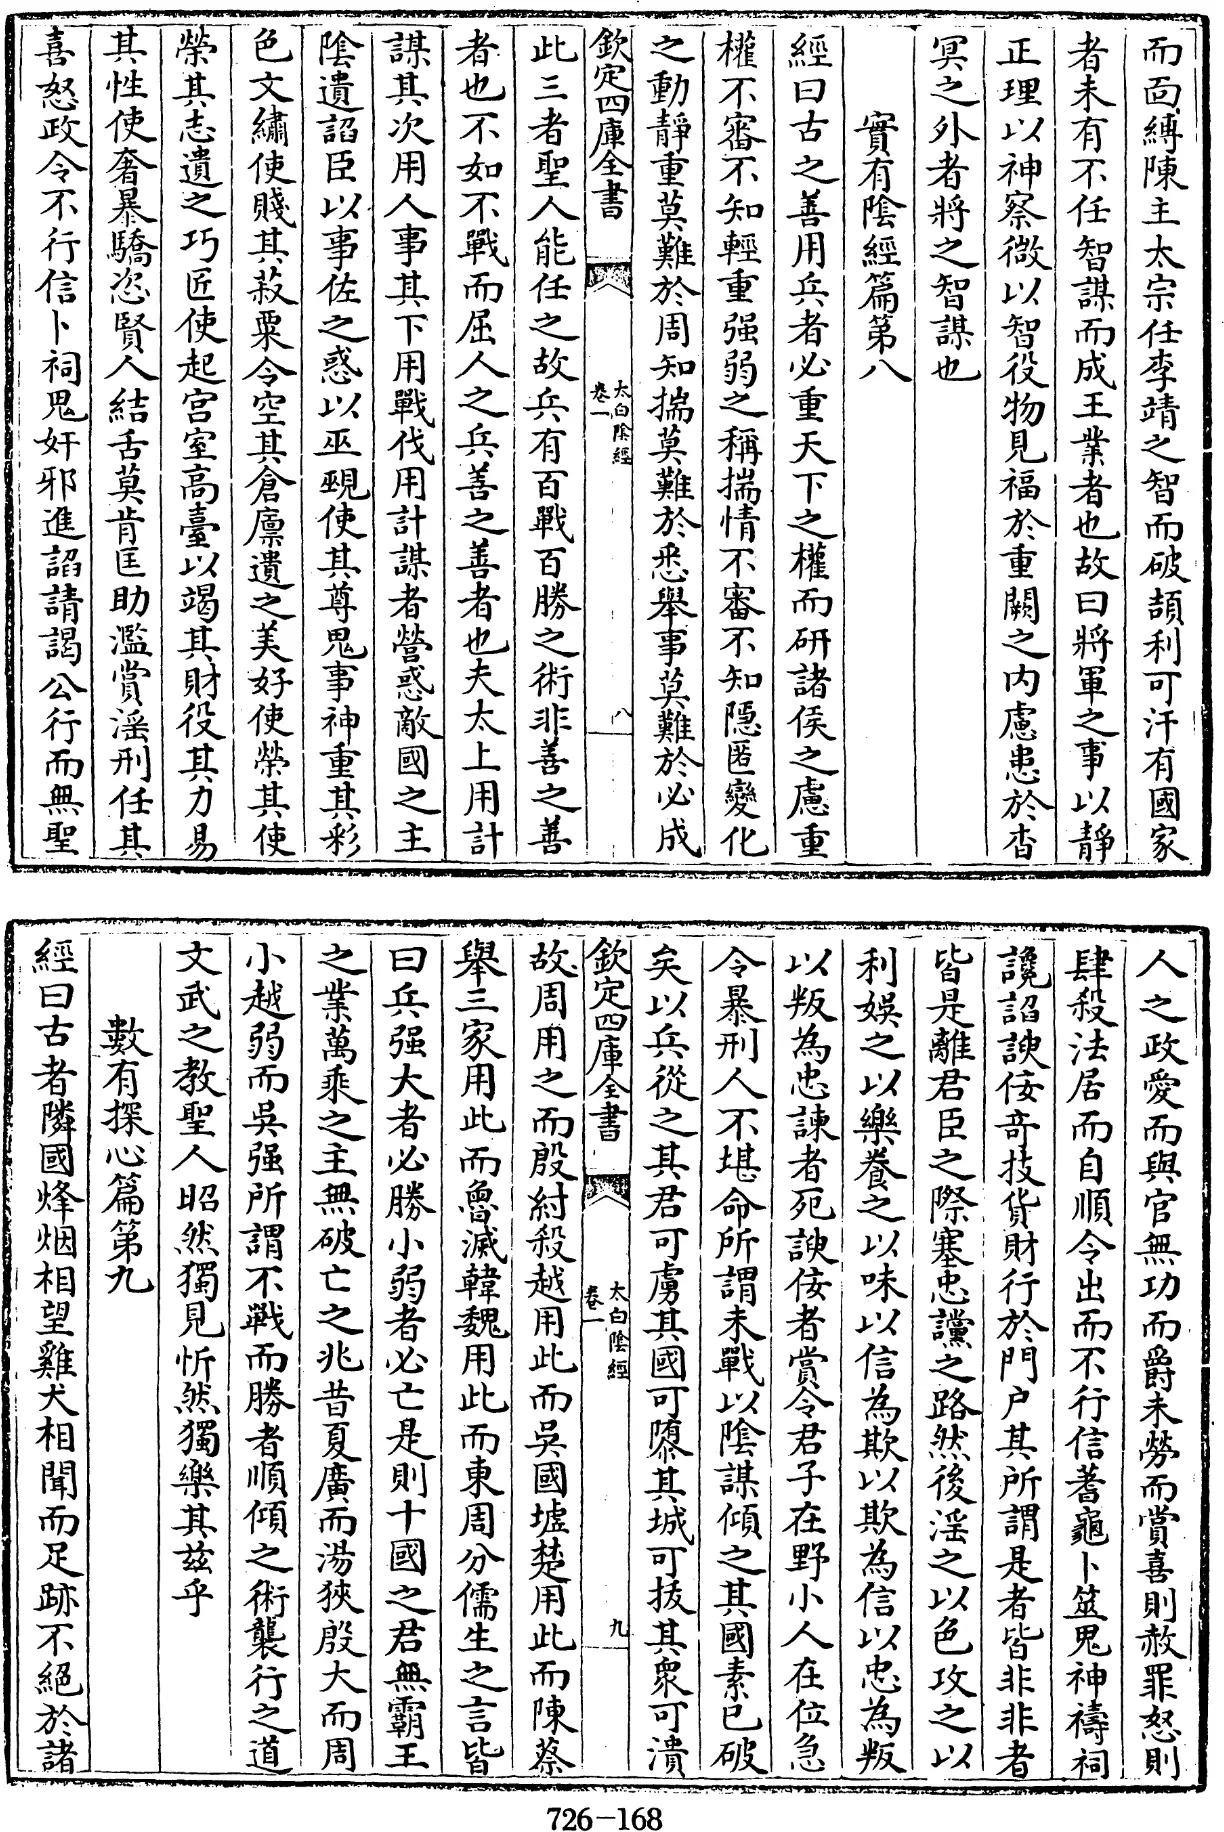 而面縛陳主太宗任李靖之智而破頡利可汗有國家
者未有不任智謀而成王業者也故曰將軍之事以靜
正理以神察微以智役物見福於重闕之内慮患於杳
冥之外者將之智謀也
實有陰經篇第八
經曰古之善用兵者必重天下之權而研諸侯之慮重
權不審不知輕重强弱之稱揣情不審不知隱匿變化
之動靜重莫難於周知揣莫難於悉舉事莫難於必成
欽定四庫全書
太白陰經
卷一
八
此三者聖人能任之故兵有百戰百勝之術非善之善
者也不如不戰而屈人之兵善之善者也夫太上用計
謀其次用人事其下用戰伐用計謀者營惑敵國之主
陰遺諂臣以事佐之惑以巫覡使其尊鬼事神重其彩
色文繡使賤其菽粟令空其倉廪遺之美好使榮其使
榮其志遺之巧匠使起宫室高臺以竭其財役其力易
其性使奢暴驕恣賢人結舌莫肯匡助濫賞淫刑任其
喜怒政令不行信卜祠鬼奸邪進諂請謁公行而無聖
人之政愛而與官無功而爵未勞而賞喜則赦罪怒則
肆殺法居而自順令出而不行信蓍龜卜筮鬼神禱祠
讒諂諛佞竒技貨財行於門户其所謂是者皆非非者
皆是離君臣之際塞忠讜之路然後淫之以色攻之以
利娱之以樂養之以味以信為欺以欺為信以忠為叛
以叛為忠諫者死諛佞者賞令君子在野小人在位急
令暴刑人不堪命所謂未戰以陰謀傾之其國素已破
矣以兵從之其君可虜其國可隳其城可拔其衆可潰
欽定四庫全書
太白陰經
卷一
九
故周用之而殷紂殺越用此而吳國墟楚用此而陳蔡
舉三家用此而魯滅韓魏用此而東周分儒生之言皆
曰兵强大者必勝小弱者必亡是則十國之君無霸王
之業萬乘之主無破亡之兆昔夏廣而湯狹殷大而周
小越弱而吳强所謂不戰而勝者順傾之術襲行之道
文武之教聖人昭然獨見忻然獨樂其兹乎
數有探心篇第九
經曰古者隣國烽烟相望雞犬相聞而足跡不絕於諸
726-168